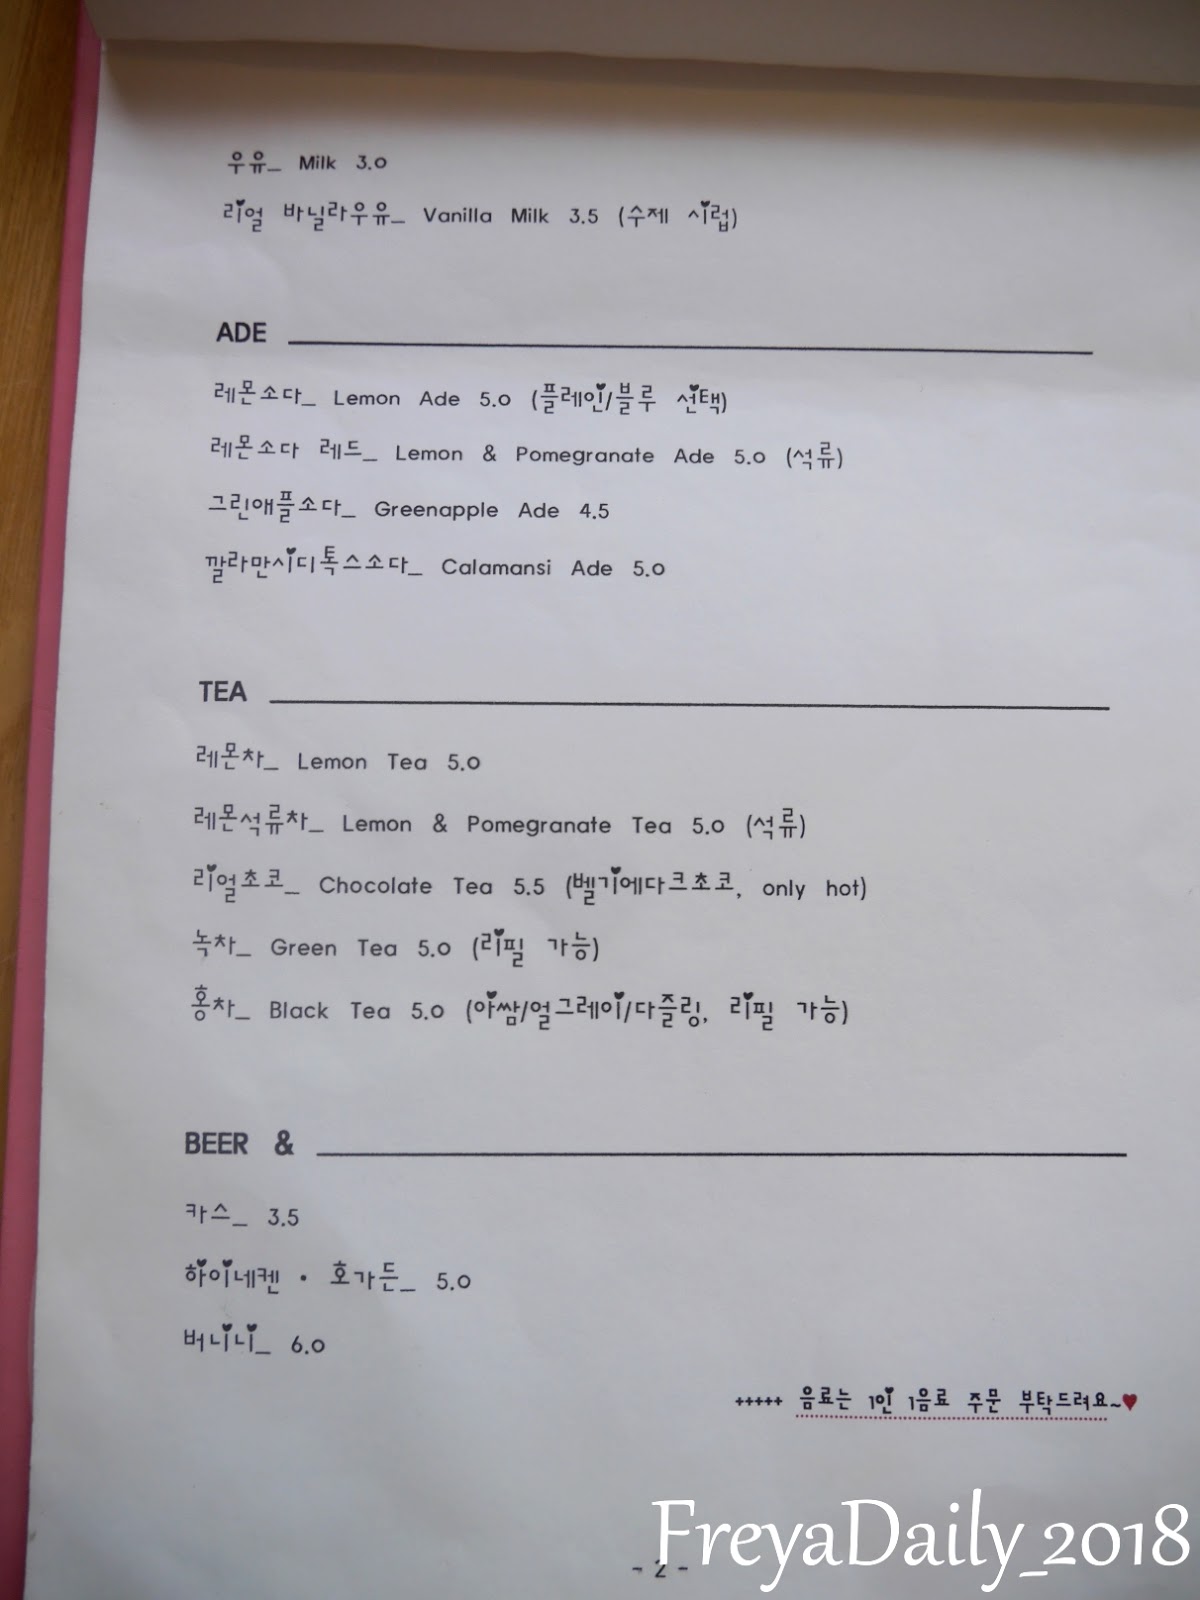 우유_ Milk 3.0
리얼 바닐라우유_ Vanilla Milk 3.5 (수제 시럽)
ADE
레몬소다_ Lemon Ade 5.0 (플레인/블루 선택)
레몬소다 레드_ Lemon & Pomegranate Ade 5.0 (석류)
그린애플소다_ Greenapple Ade 4.5
깔라만시디톡스소다_ Calamansi Ade 5.0
TEA
레몬차_ Lemon Tea 5.0
레몬석류차_ Lemon & Pomegranate Tea 5.0 (석류)
리얼초코_ Chocolate Tea 5.5 (벨기에다크초코, only hot)
녹차_ Green Tea 5.0 (리필 가능)
홍차_ Black Tea 5.0 (아쌈/얼그레이/다즐링, 리필 가능)
BEER &
카스_ 3.5
하이네켄 · 호가든_ 5.0
버니니_ 6.0
+++++ 음료는 1인 1음료 주문 부탁드려요~♥
- 2 -
FreyaDaily_2018